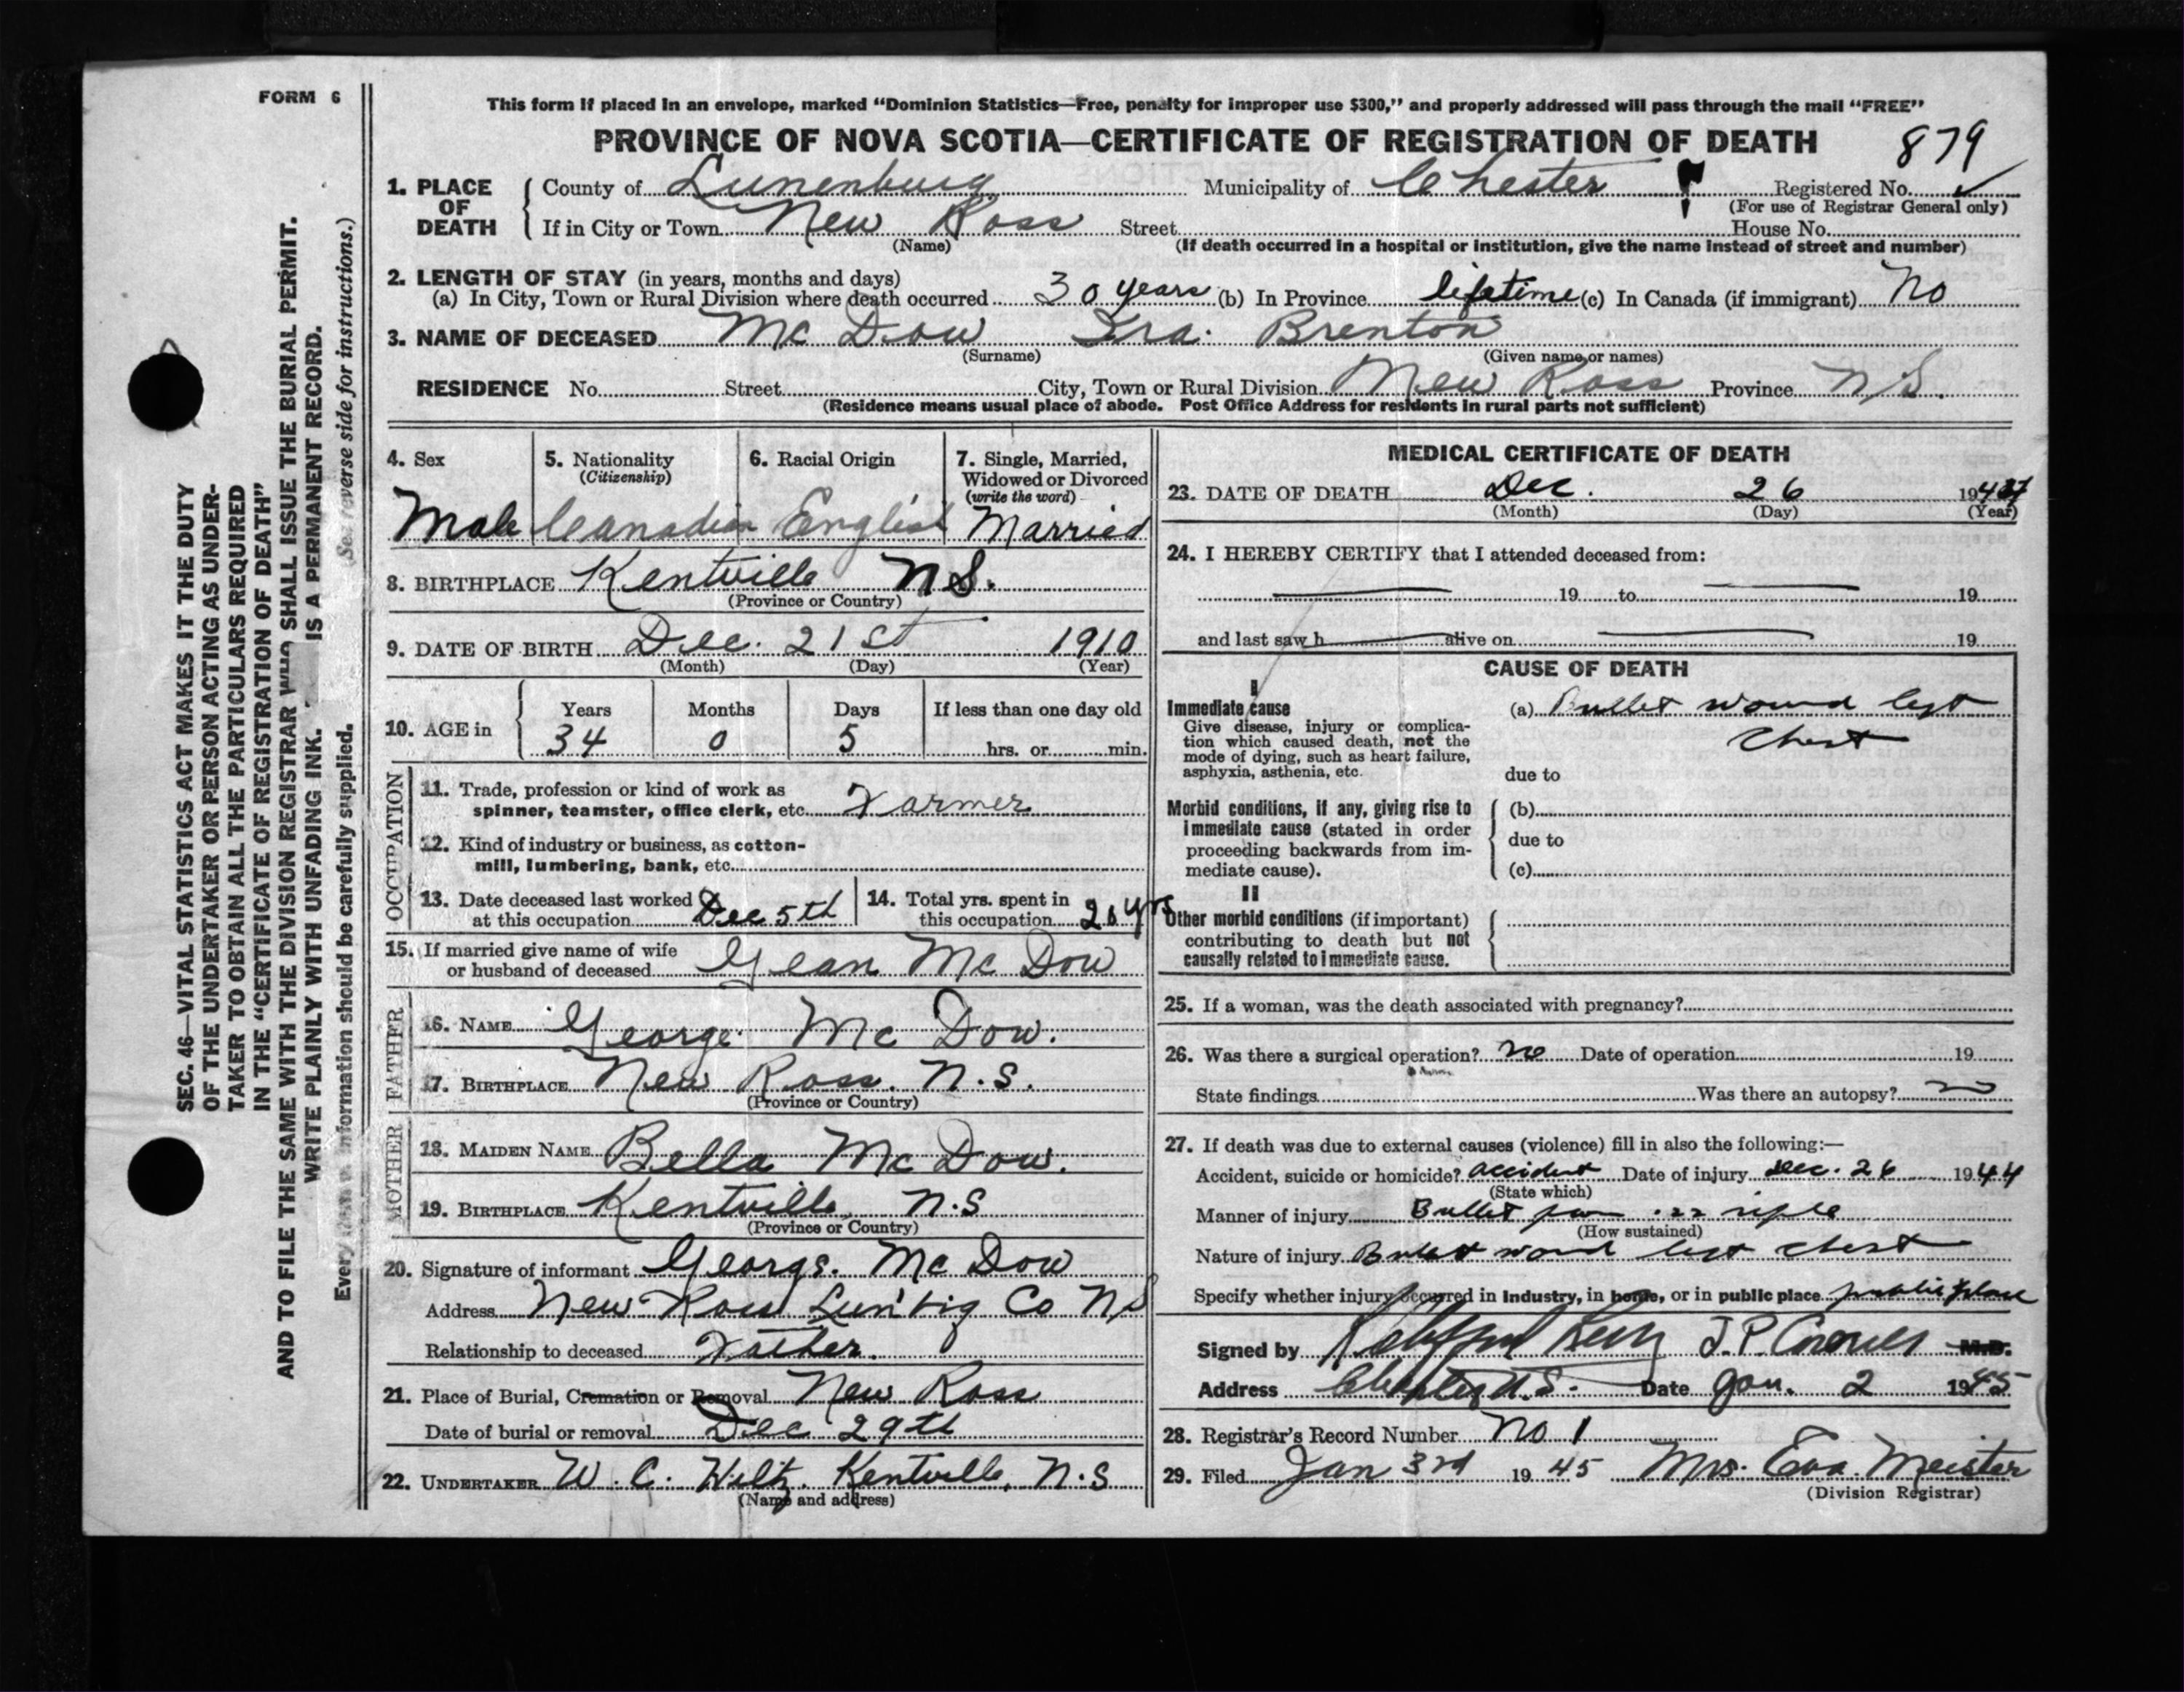 FORM 6
This form if placed in an envelope, marked “Dominion Statistics—Free, penalty for improper use $300,” and properly addressed will pass through the mail “FREE”
PROVINCE OF NOVA SCOTIA—CERTIFICATE OF REGISTRATION OF DEATH
879
1. PLACE OF DEATH
County of Lunenburg Municipality of Chester Registered No. ✓
(For use of Registrar General only)
If in City or Town New Ross Street House No.
(Name) (If death occurred in a hospital or institution, give the name instead of street and number)
2. LENGTH OF STAY (in years, months and days)
(a) In City, Town or Rural Division where death occurred 30 years (b) In Province lifetime (c) In Canada (if immigrant) No
3. NAME OF DECEASED Mc Dow Ira. Brenton
(Surname) (Given name or names)
RESIDENCE No. Street City, Town or Rural Division New Ross Province N.S.
(Residence means usual place of abode. Post Office Address for residents in rural parts not sufficient)
4. Sex
Male
5. Nationality
(Citizenship)
Canadian
6. Racial Origin
English
7. Single, Married,
Widowed or Divorced
(write the word)
Married
8. BIRTHPLACE Kentville N.S.
(Province or Country)
9. DATE OF BIRTH Dec. 21st 1910
(Month) (Day) (Year)
10. AGE in
Years Months Days If less than one day old
34 0 5 hrs. or min.
OCCUPATION
11. Trade, profession or kind of work as
spinner, teamster, office clerk, etc. Farmer
12. Kind of industry or business, as cotton-
mill, lumbering, bank, etc.
13. Date deceased last worked
at this occupation Dec 5th
14. Total yrs. spent in
this occupation 20 yrs
15. If married give name of wife
or husband of deceased Gean Mc Dow
FATHER
16. NAME George Mc Dow.
17. BIRTHPLACE New Ross. N.S.
(Province or Country)
MOTHER
18. MAIDEN NAME Bella Mc Dow.
19. BIRTHPLACE Kentville, N.S
(Province or Country)
20. Signature of informant George. Mc Dow
Address New Ross Lun'big Co NS
Relationship to deceased Father.
21. Place of Burial, Cremation or Removal New Ross
Date of burial or removal Dec 29th
22. UNDERTAKER W. C. Hiltz. Kentville, N.S
(Name and address)
MEDICAL CERTIFICATE OF DEATH
23. DATE OF DEATH Dec. 26 1944
(Month) (Day) (Year)
24. I HEREBY CERTIFY that I attended deceased from:
19 to 19
and last saw h alive on 19
CAUSE OF DEATH
I
Immediate cause
Give disease, injury or complica-
tion which caused death, not the
mode of dying, such as heart failure,
asphyxia, asthenia, etc.
(a) Bullet wound left
chest
due to
Morbid conditions, if any, giving rise to
immediate cause (stated in order
proceeding backwards from im-
mediate cause).
(b)
due to
(c)
II
Other morbid conditions (if important)
contributing to death but not
causally related to immediate cause.
25. If a woman, was the death associated with pregnancy?
26. Was there a surgical operation? no Date of operation 19
State findings Was there an autopsy? no
27. If death was due to external causes (violence) fill in also the following:—
Accident, suicide or homicide? accident Date of injury Dec. 26 1944
(State which)
Manner of injury Bullet from .22 rifle
(How sustained)
Nature of injury Bullet wound left chest
Specify whether injury occurred in Industry, in home, or in public place public place
Signed by J.P. Coroner M.D.
Address Chester N.S. Date Jan. 2 1945
28. Registrar's Record Number No 1
29. Filed Jan 3rd 1945 Mrs. Eva. Meister
(Division Registrar)
SEC. 46—VITAL STATISTICS ACT MAKES IT THE DUTY
OF THE UNDERTAKER OR PERSON ACTING AS UNDER-
TAKER TO OBTAIN ALL THE PARTICULARS REQUIRED
IN THE “CERTIFICATE OF REGISTRATION OF DEATH”
AND TO FILE THE SAME WITH THE DIVISION REGISTRAR WHO SHALL ISSUE THE BURIAL PERMIT.
WRITE PLAINLY WITH UNFADING INK. IS A PERMANENT RECORD.
Every item of information should be carefully supplied. (See reverse side for instructions.)